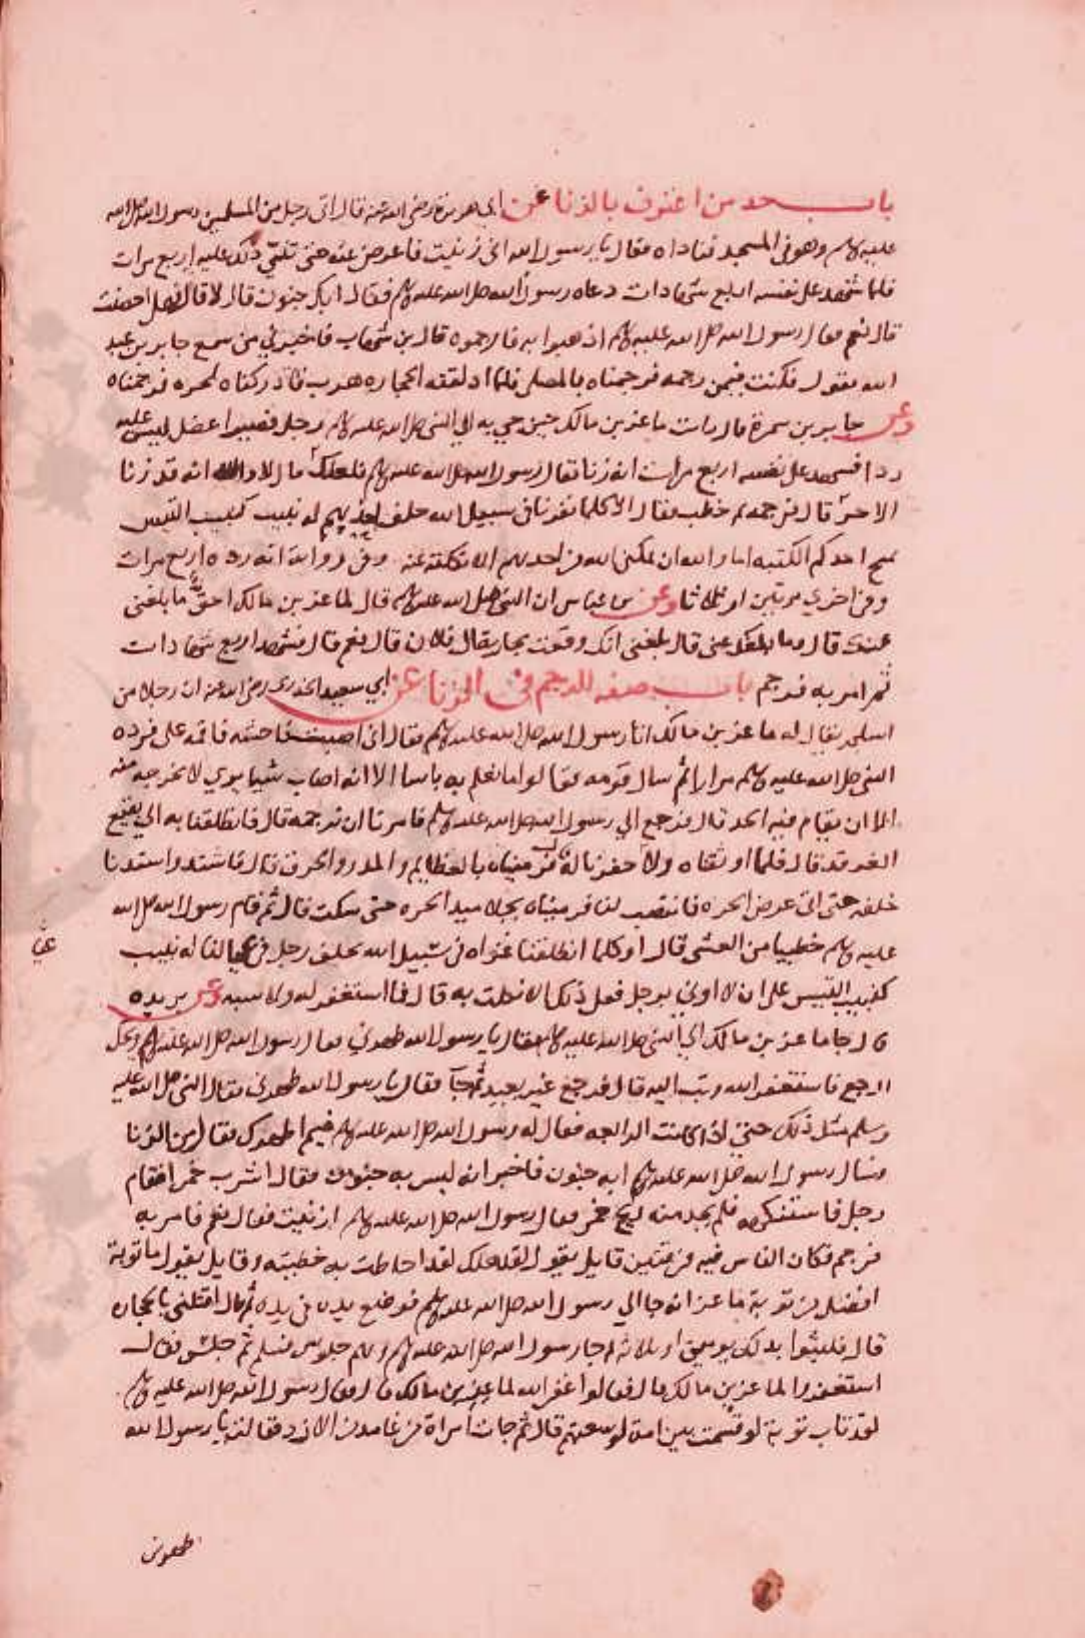 باب حد من اعترف بالزنا عن ابي هريرة رضي الله عنه قال اتى رجل من المسلمين رسول الله صلى الله
عليه وسلم وهو في المسجد فناداه فقال يا رسول الله اني زنيت فاعرض عنه حتى ثنى ذلك عليه اربع مرات
فلما شهد على نفسه اربع شهادات دعاه رسول الله صلى الله عليه وسلم فقال ابك جنون قال لا قال فهل احصنت
قال نعم فقال رسول الله صلى الله عليه وسلم اذهبوا به فارجموه قال بن شهاب فاخبرني من سمع جابر بن عبد
الله يقول فكنت فيمن رجمه فرجمناه بالمصلى فلما اذلقته الحجاره هرب فادركناه بالحره فرجمناه
وعن جابر بن سمرة قال رايت ماعز بن مالك حين جي به الي النبي صلى الله عليه وسلم رجل قصير اعضل ليس عليه
ردا فشهد على نفسه اربع مرات انه زنا فقال رسول الله صلى الله عليه وسلم فلعلك قال لا والله انه قد زنا
الاخر قال فرجمه ثم خطب فقال الا كلما نفرنا في سبيل الله خلف احدهم له نبيب كنبيب التيس
يمنح احدكم الكثبه اما والله ان يمكني الله من احدهم الا نكلته عنه وفي رواية انه رده اربع مرات
وفي اخري مرتين او ثلاثا وعن بن عباس ان النبي صلى الله عليه وسلم قال لماعز بن مالك احق ما بلغني
عنك قال وما بلغك عني قال بلغني انك وقعت بجاريه ال فلان قال نعم قال فشهد اربع شهادات
ثم امر به فرجم باب صفه الرجم في الزنا عن ابي سعيد الخدري رضي الله عنه ان رجلا من
اسلم يقال له ماعز بن مالك اتا رسول الله صلى الله عليه وسلم فقال اني اصبت فاحشه فاقمه علي فرده
النبي صلى الله عليه وسلم مرارا ثم سال قومه فقالوا ما نعلم به باسا الا انه اصاب شيا يري لا يخرجه منه
الا ان يقام فيه الحد قال فرجع الي رسول الله صلى الله عليه وسلم فامرنا ان نرجمه قال فانطلقنا به الي بقيع
الغرقد قال فلما اوثقناه ولا حفرنا له قال فرميناه بالعظام والمدر والخزف قال فاشتد واشتدنا
خلفه حتى اتى عرض الحره فانتصب لنا فرميناه بجلاميد الحره حتى سكت قال ثم قام رسول الله صلى الله
عليه وسلم خطيبا من العشي قال اوكلما انطلقنا غزاه في سبيل الله تخلف رجل في عيالنا له نبيب
كنبيب التيس على ان لا اوتي برجل فعل ذلك الا نكلت به قال فما استغفر له ولا سبه وعن بريده
قال جا ماعز بن مالك الي النبي صلى الله عليه وسلم فقال يا رسول الله طهرني فقال رسول الله صلى الله عليه وسلم ويحك
ارجع فاستغفر الله وتب اليه قال فرجع غير بعيد ثم جآ فقال يا رسول الله طهرني فقال النبي صلى الله عليه
وسلم مثل ذلك حتى اذا كانت الرابعه فقال له رسول الله صلى الله عليه وسلم فيم اطهرك فقال من الزنا
فسال رسول الله صلى الله عليه وسلم ابه جنون فاخبر انه ليس به جنون فقال اشرب خمرا فقام
رجل فاستنكهه فلم يجد منه ريح خمر فقال رسول الله صلى الله عليه وسلم ازنيت فقال نعم فامر به
فرجم فكان الناس فيه فرقتين قايل يقول لقد هلك لقد احاطت به خطيته وقايل يقول ما توبة
افضل من توبة ماعز انه جا الي رسول الله صلى الله عليه وسلم فوضع يده في يده ثم قال اقتلني بالحجاره
قال فلبثوا بذلك يومين او ثلاثه ثم جا رسول الله صلى الله عليه وسلم وهم جلوس فسلم ثم جلس فقال
استغفروا لماعز بن مالك قال فقالوا غفر الله لماعز بن مالك قال فقال رسول الله صلى الله عليه وسلم
لقد تاب توبة لو قسمت بين امة لوسعتهم قال ثم جات امراة من غامد من الازد فقالت يا رسول الله
طهرني